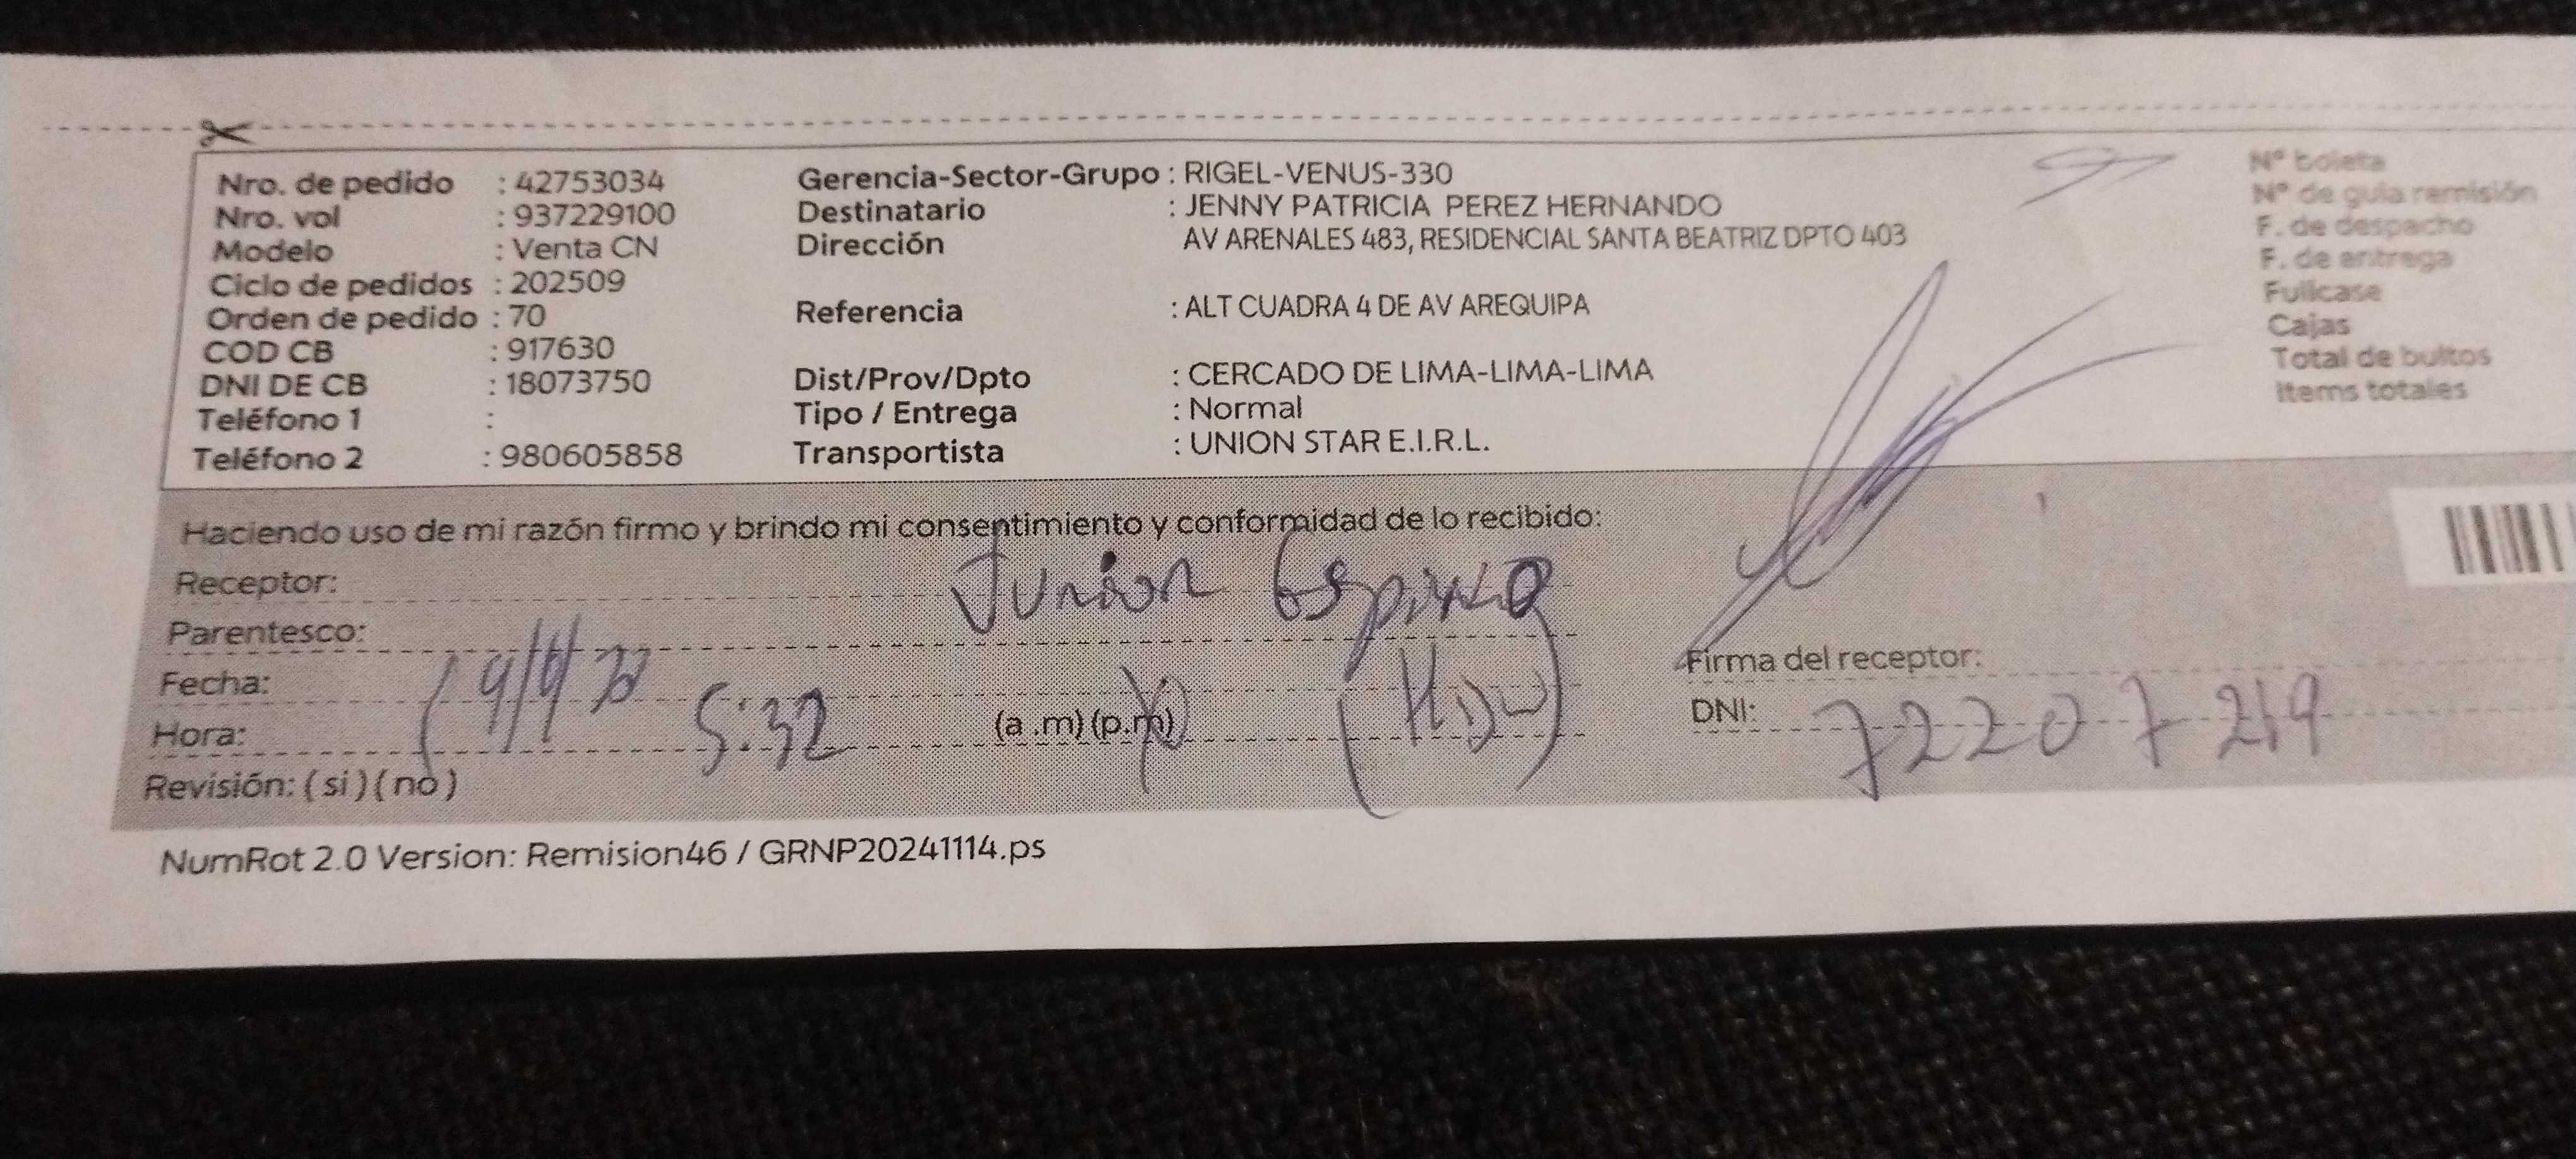 Nro. de pedido : 42753034
Nro. vol : 937229100
Modelo : Venta CN
Ciclo de pedidos : 202509
Orden de pedido : 70
COD CB : 917630
DNI DE CB : 18073750
Teléfono 1 :
Teléfono 2 : 980605858
Gerencia-Sector-Grupo : RIGEL-VENUS-330
Destinatario : JENNY PATRICIA PEREZ HERNANDO
Dirección AV ARENALES 483, RESIDENCIAL SANTA BEATRIZ DPTO 403
Referencia : ALT CUADRA 4 DE AV AREQUIPA
Dist/Prov/Dpto : CERCADO DE LIMA-LIMA-LIMA
Tipo / Entrega : Normal
Transportista : UNION STAR E.I.R.L.
Nº boleta
Nº de guia remisión
F. de despacho
F. de entrega
Fullcase
Cajas
Total de bultos
Items totales
Haciendo uso de mi razón firmo y brindo mi consentimiento y conformidad de lo recibido:
Receptor: Junior
Parentesco:
Fecha:
Hora: 5:32 (a .m) (p.m)
Revisión: ( si ) ( no )
Firma del receptor:
DNI: 72207219
NumRot 2.0 Version: Remision46 / GRNP20241114.ps